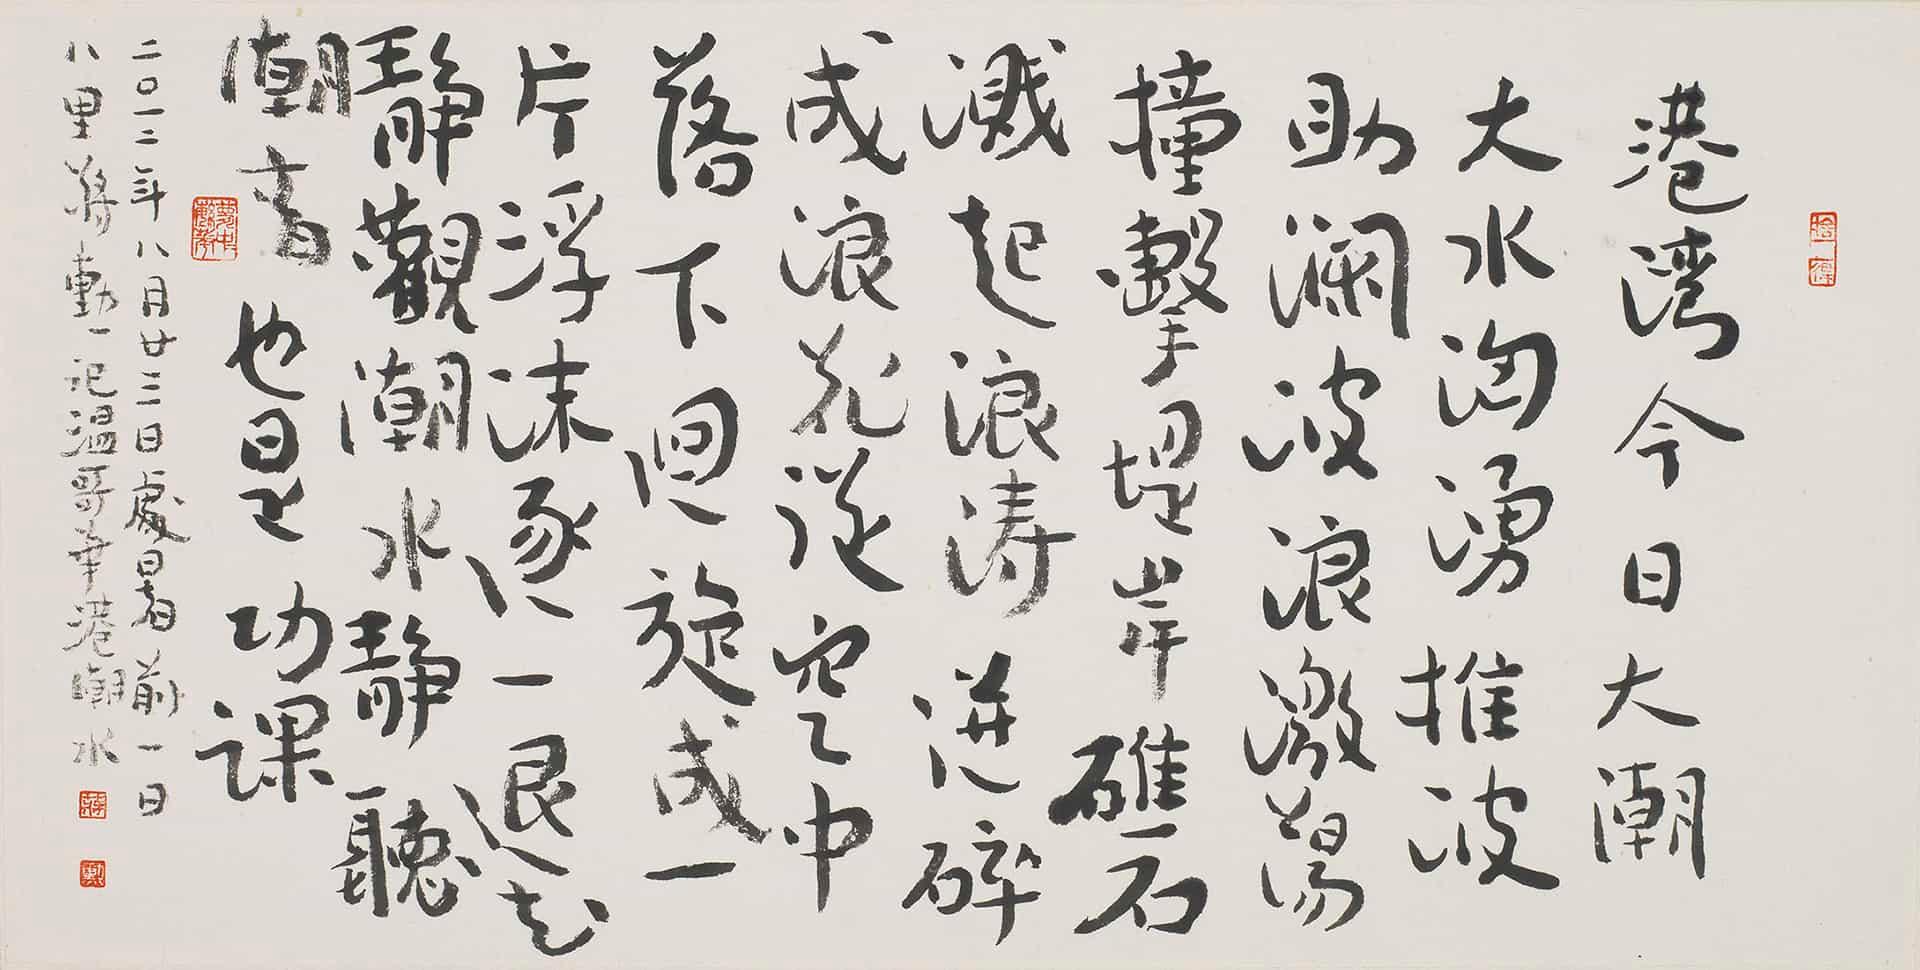 捨得
港灣今日大潮
大水洶湧推波
助瀾波浪激蕩
撞擊堤岸礁石
濺起浪濤迸碎
成浪花從空中
落下迴旋成一
片浮沫逐一退去
靜觀潮水靜聽
潮音也是功課
二〇一二年八月廿三日處暑前一日
八里蔣勳記溫哥華港潮水
蔣
勳